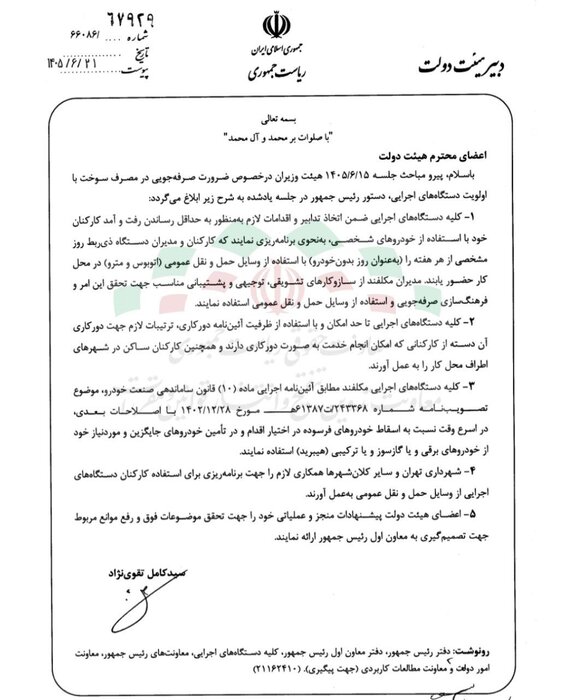 ۶۷۹۲۹
جمهوری اسلامی ایران
ریاست جمهوری
دبیر هیئت دولت
شماره ۶۶۰۸۶/
تاریخ
۱۴۰۵/۶/۲۱
پیوست
بسمه تعالی
"با صلوات بر محمد و آل محمد"
اعضای محترم هیئت دولت
باسلام، پیرو مباحث جلسه ۱۴۰۵/۶/۱۵ هیئت وزیران درخصوص ضرورت صرفه‌جویی در مصرف سوخت با
اولویت دستگاه‌های اجرایی، دستور رئیس جمهور در جلسه یادشده به شرح زیر ابلاغ می‌گردد:
۱- کلیه دستگاه‌های اجرایی ضمن اتخاذ تدابیر و اقدامات لازم به‌منظور به حداقل رساندن رفت و آمد کارکنان
خود با استفاده از خودروهای شخصی، به‌نحوی برنامه‌ریزی نمایند که کارکنان و مدیران دستگاه ذی‌ربط روز
مشخصی از هر هفته را (به‌عنوان روز بدون‌خودرو) با استفاده از وسایل حمل و نقل عمومی (اتوبوس و مترو) در محل
کار حضور یابند. مدیران مکلفند از سازوکارهای تشویقی، توجیهی و پشتیبانی مناسب جهت تحقق این امر و
فرهنگ‌سازی صرفه‌جویی و استفاده از وسایل حمل و نقل عمومی استفاده نمایند.
۲- کلیه دستگاه‌های اجرایی تا حد امکان و با استفاده از ظرفیت آئین‌نامه دورکاری، ترتیبات لازم جهت دورکاری
آن دسته از کارکنانی که امکان انجام خدمت به صورت دورکاری دارند و همچنین کارکنان ساکن در شهرهای
اطراف محل کار را به عمل آورند.
۳- کلیه دستگاه‌های اجرایی مکلفند مطابق آئین‌نامه اجرایی ماده (۱۰) قانون ساماندهی صنعت خودرو، موضوع
تصویب‌نامه شماره ۲۴۳۳۶۸/ت۶۱۳۸۷هـ مورخ ۱۴۰۲/۱۲/۲۸ با اصلاحات بعدی،
در اسرع وقت نسبت به اسقاط خودروهای فرسوده در اختیار اقدام و در تأمین خودروهای جایگزین و موردنیاز خود
از خودروهای برقی و یا گازسوز و یا ترکیبی (هیبرید) استفاده نمایند.
۴- شهرداری تهران و سایر کلان‌شهرها همکاری لازم را جهت برنامه‌ریزی برای استفاده کارکنان دستگاه‌های
اجرایی از وسایل حمل و نقل عمومی به‌عمل آورند.
۵- اعضای هیئت دولت پیشنهادات منجز و عملیاتی خود را جهت تحقق موضوعات فوق و رفع موانع مربوط
جهت تصمیم‌گیری به معاون اول رئیس جمهور ارائه نمایند.
سیدکامل تقوی‌نژاد
رونوشت: دفتر رئیس جمهور، دفتر معاون اول رئیس جمهور، کلیه دستگاه‌های اجرایی، معاونت‌های رئیس جمهور، معاونت
امور دولت و معاونت مطالعات کاربردی (جهت پیگیری). (۲۱۱۶۲۴۱۰)